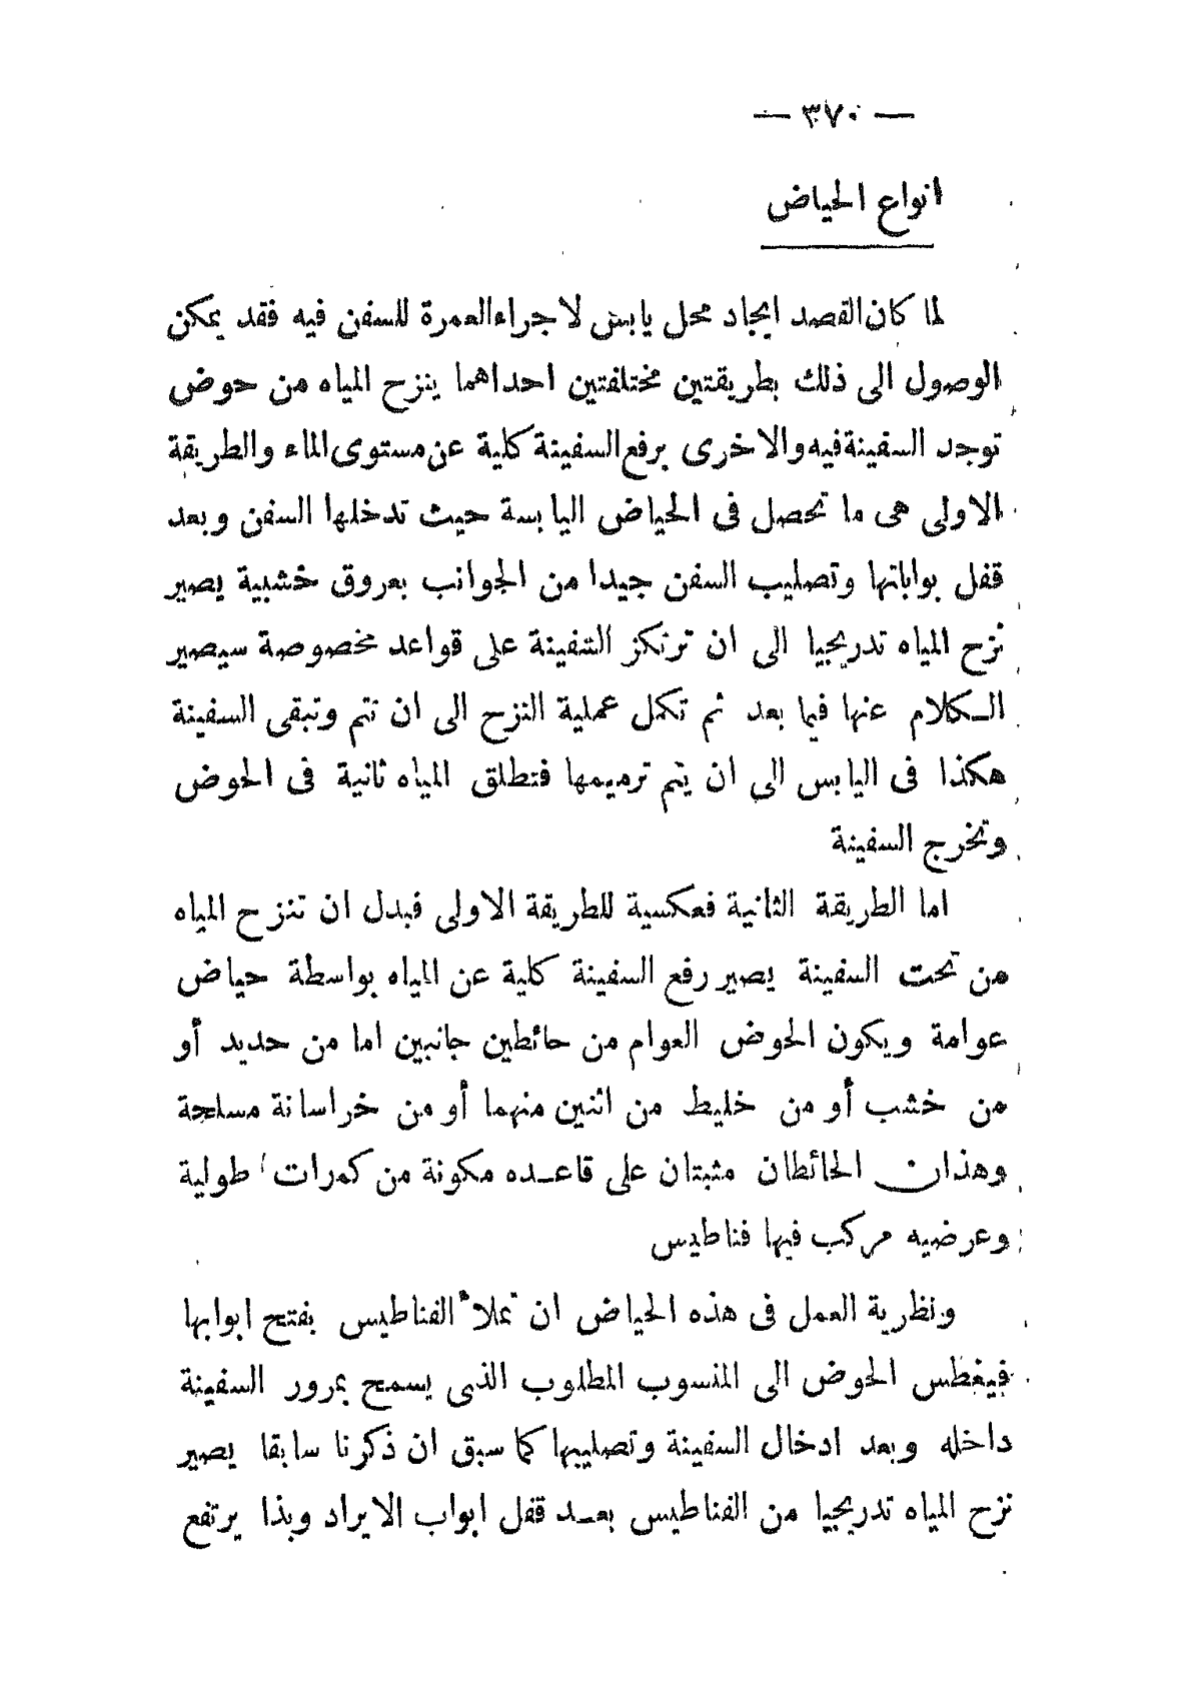 — ٣٧٠ —
انواع الحياض
لما كان القصد ايجاد محل يابس لاجراء العمرة للسفن فيه فقد يمكن
الوصول الى ذلك بطريقتين مختلفتين احداهما ينزح المياه من حوض
توجد السفينة فيه والاخرى برفع السفينة كلية عن مستوى الماء والطريقة
الاولى هى ما تحصل فى الحياض اليابسة حيث تدخلها السفن وبعد
قفل بواباتها وتصليب السفن جيدا من الجوانب بعروق خشبية يصير
نزح المياه تدريجيا الى ان ترتكز السفينة على قواعد مخصوصة سيصير
الـكلام عنها فيما بعد ثم تكمل عملية النزح الى ان تتم وتبقى السفينة
هكذا فى اليابس الى ان يتم ترميمها فتطلق المياه ثانية فى الحوض
وتخرج السفينة
اما الطريقة الثانية فعكسية للطريقة الاولى فبدل ان تنزح المياه
من تحت السفينة يصير رفع السفينة كلية عن المياه بواسطة حياض
عوامة ويكون الحوض العوام من حائطين جانبين اما من حديد أو
من خشب أو من خليط من اثنين منهما أو من خراسانة مسلحة
وهذان الحائطان مثبتان على قاعـده مكونة من كمرات طولية
وعرضيه مركب فيها فناطيس
ونظرية العمل فى هذه الحياض ان تملأ الفناطيس بفتح ابوابها
فيغطس الحوض الى المنسوب المطلوب الذى يسمح بمرور السفينة
داخله وبعد ادخال السفينة وتصليبها كما سبق ان ذكرنا سابقا يصير
نزح المياه تدريجيا من الفناطيس بعـد قفل ابواب الايراد وبذا يرتفع